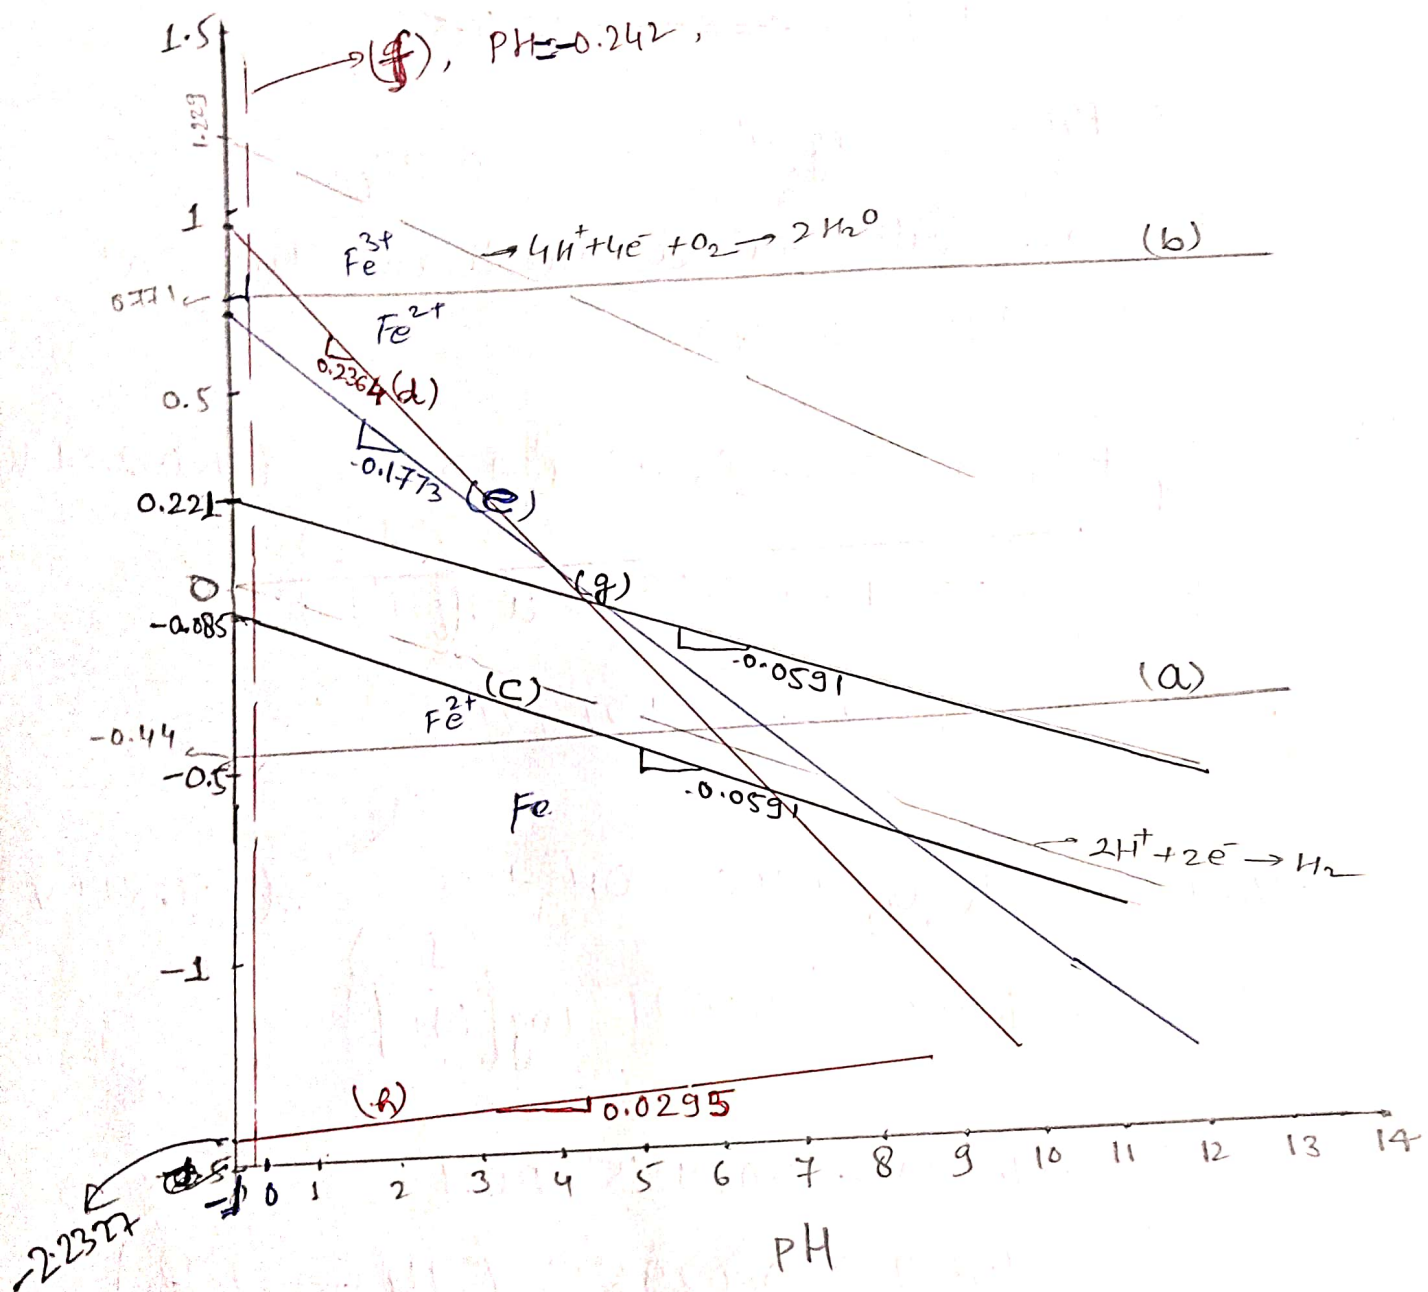 1.5
(f), PH=-0.242,
1.229
1
Fe3+
4H+ +4e- +O2 → 2H2O
(b)
0.771
Fe2+
0.2364 (d)
0.5
-0.1773
(e)
0.221
0
(g)
-0.085
-0.0591
(a)
(c)
Fe2+
-0.44
-0.5
-0.0591
Fe
2H+ +2e- → H2
-1
(h)
0.0295
-1 0 1 2 3 4 5 6 7 8 9 10 11 12 13 14
-2.2327
PH